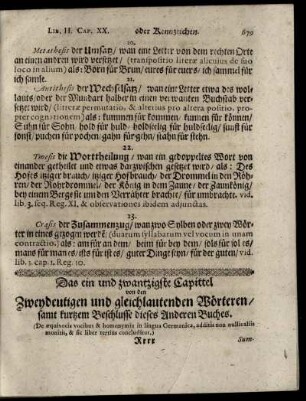 Lib. II. Cap. XX. oder Kennzeichen. 679
20.
Metathesis der Umsatz/ wan eine Letter von dem rechten Orte
an einen andren wird versetzet/ (transpositio literæ alicujus de suo
loco in alium) als: Born für Brun/ eures für euers/ ich sammel für
ich samle.
21.
Antithesis der Wechselsatz/ wan eine Letter etwa des wol-
lauts/ oder der Mundart halber in einen verwanten Buchstab ver-
setzet wird/ (literæ permutatio, & alterius pro altera positio, pro-
pter cognationem) als: kummen für kommen/ kunnen für können/
Suhn für Sohn/ hold für huld/ holdselig für huldselig/ sunst für
sonst/ puchen für pochen/ gahn für gihn/ stahn für stehn.
22.
Tmesis die Worttheilung/ wan ein gedoppeltes Wort von
einander getheilet und etwas darzwischen gesetzet wird/ als: Des
Hofes itziger brauch/ itziger Hofbrauch/ der Drommel in den Röh-
ren/ der Rohrdrommel/ der König in dem Zaune/ der Zaunkönig/
bey einem Berge sie um den Verrähter brachte/ für umbrachte. vid.
lib. 3. seq. Reg. II. & observationes ibidem adjunctas.
23.
Crasis der Zusammenzug/ wan zwo Sylben oder zwey Wör-
ter in eines gezogen werdē: (duarum syllabarum vel vocum in unam
contractio,) als: am für an dem/ beim für bey dem/ sols für sol es/
mans für man es/ ists für ist es/ guter Ding seyn/ für der guten/ vid.
lib. 3. cap. 1. Reg. 10.
Das ein und zwantzigste Capittel
von den
Zweydeutigen und gleichlautenden Wörteren/
samt kurtzem Beschlusse dieses Anderen Buches.
(De æquivocis vocibus & homonymis in lingua Germanica, additis non nullis aliis
monitis, & sic liber tertius concluditur.)
Rrrr Sum-